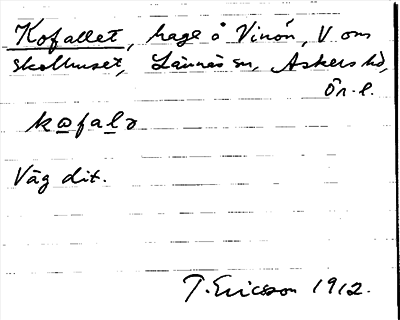 Kofallet, hage å Vinön, V. om
skolhuset, Lännäs sn, Askers hd,
Ör. l.
kωfalə
Väg dit.
T. Ericsson 1912.